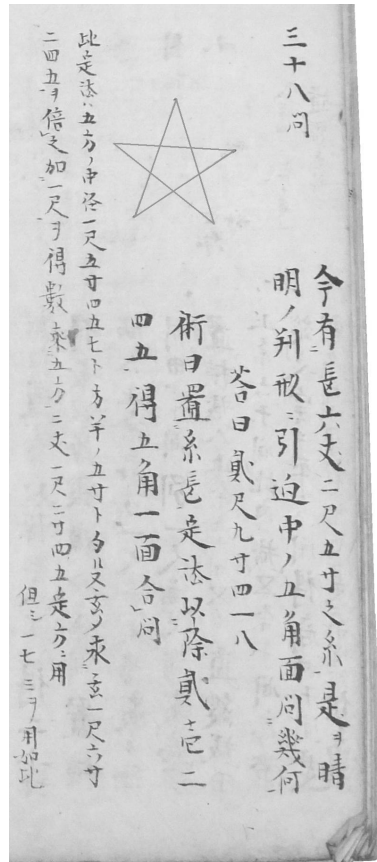 三十八問
今有長六丈二尺五寸之糸是ヲ晴
明ノ判形ニ引廻中ノ五角面問幾何
答曰貳尺九寸四一八
術曰置糸長是法以除貳壱二
四五得五角一面合問
此是法ハ五方ノ中径一尺五寸四五七ト方半ノ五寸ト
二四五ヲ倍之加一尺ヲ得数乘五方二丈一尺二寸四五是方ニ用
但シ一七三ヲ用如此